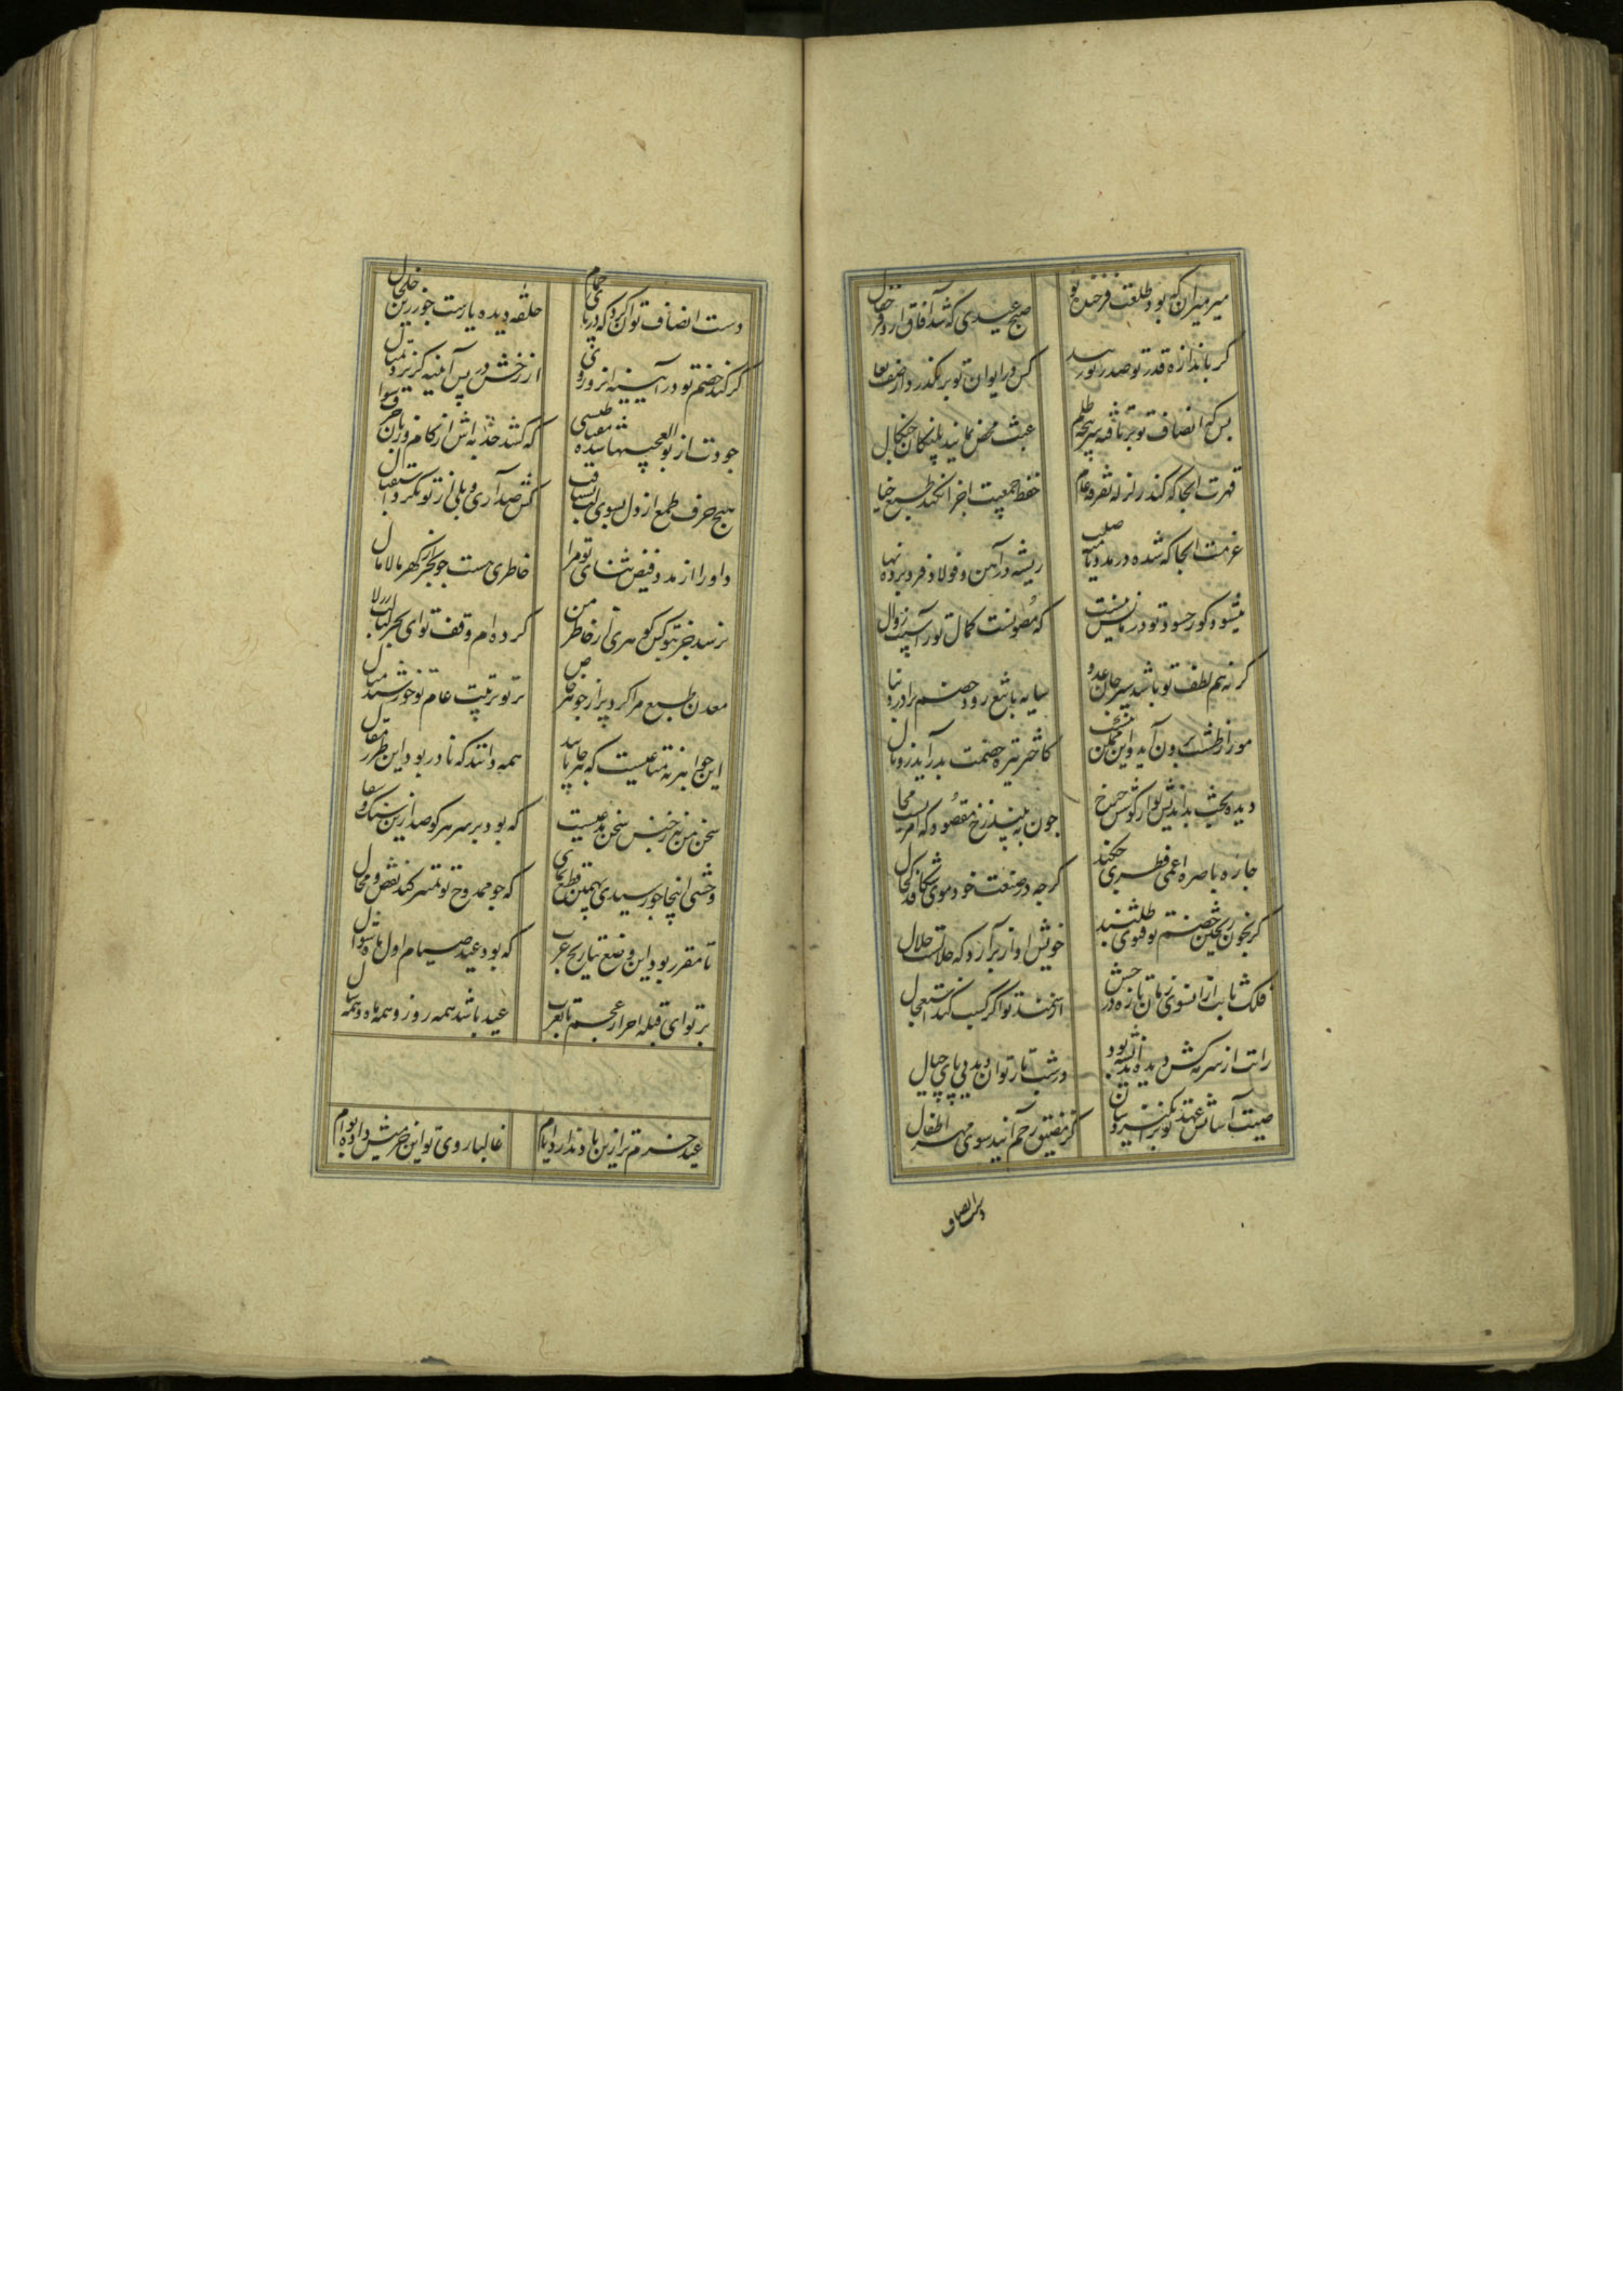 میر میران که بود طلعت فرخنده تو
صبح عیدی که شد آفاق ازو فرخ فال
کر باندازه قدر تو صدر تو رسد
کس در ایوان تو بر نکذرد از صف نعال
بس که انصاف تو بر تافته سر پنجه ظلم
عبث محض نمایند پلنکان چنکال
قهرت آنجا که کند زلزله تفرقه عام
حفظ جمعیت اجزا نکند طبع جبال
عزمت آنجا که شده در مدد نامیه صلب
ریشه در آهن و فولاد فرو برده نهال
میشود کور حسود تو و درمانش نیست
که مصونست کمال تو ز آسیب زوال
کر نه هم لطف تو باشد سپر جان عدو
سایه با تیغ رود خصم ترا در دنبال
مو ز اش برون آید و این ممکن نیست
کاختر تیره خصمت بدر آید ز وبال
دیده بخت بداندیش تو از کوش چرخ
چون به بیند رخ مقصود که امریست محال
چاره باصره اعمی فطری چکند
کرچه در صنعت خود موی شکافد کحال
کر بخون ریختن خصم تو فتوی طلبند
خونش آواز برآرد که حلالست حلال
فلک ثابت از آنسوی زمان تازد رخش
از سمند تو اکر کسب کند استعجال
رایت از سرمه کش دیده بینش بود
در شب تار توان دید پی پای خیال
صیت آسایش عهد تو بر انسان
کز مضیق رحم آیند سوی مهد اطفال
دست انصاف
دست انصاف تو آن کرد که در پای حمام
حلقه دیده بازست چو زرین خلخال
کر کند خصم تو در آینه از دور
از رخش در پس آینه کریزد تمثال
جودت از بوالعجبیها شده مقناطیسی
که کشد جذبه اش از کام و زبان حرف سوال
هیچ حرف طمع از دل بسوی لب نشتافت
کش صد آری و بلی از تو نکرد استقبال
داورا از مدد فیض ثنای تو مرا
خاطری هست چو بحر از کهر مالامال
نرسد جز بتو کس کوهری از خاطر من
کرده ام وقف تو این بحر لبالب ز لآل
معدن طبع مرا کرد پر از جوهر خاص
پرتو تربیت عام تو خورشید مثال
این جواهر نه متاعیست که هر جا یابند
همه دانند که نادر بود این طرز مقال
سخن من نه ز جنس سخن مدعیست
که بود بر سر هر کو صد ازین سنک و سفال
وحشی اینجا چو رسیدی بهمین قطع نمای
که چو ممدوح تو تمییز کند نقص و کمال
تا مقرر بود این وضع بتاریخ عرب
که بود عید صیام اول ماه شوال
بر تو ای قبله احرار عجم تا بعرب
عید باشد همه روز و همه ماه و همه سال
عید خرم تر ازین یاد ندارد ایام
غالبا روی تو این خرمیش داده بوام